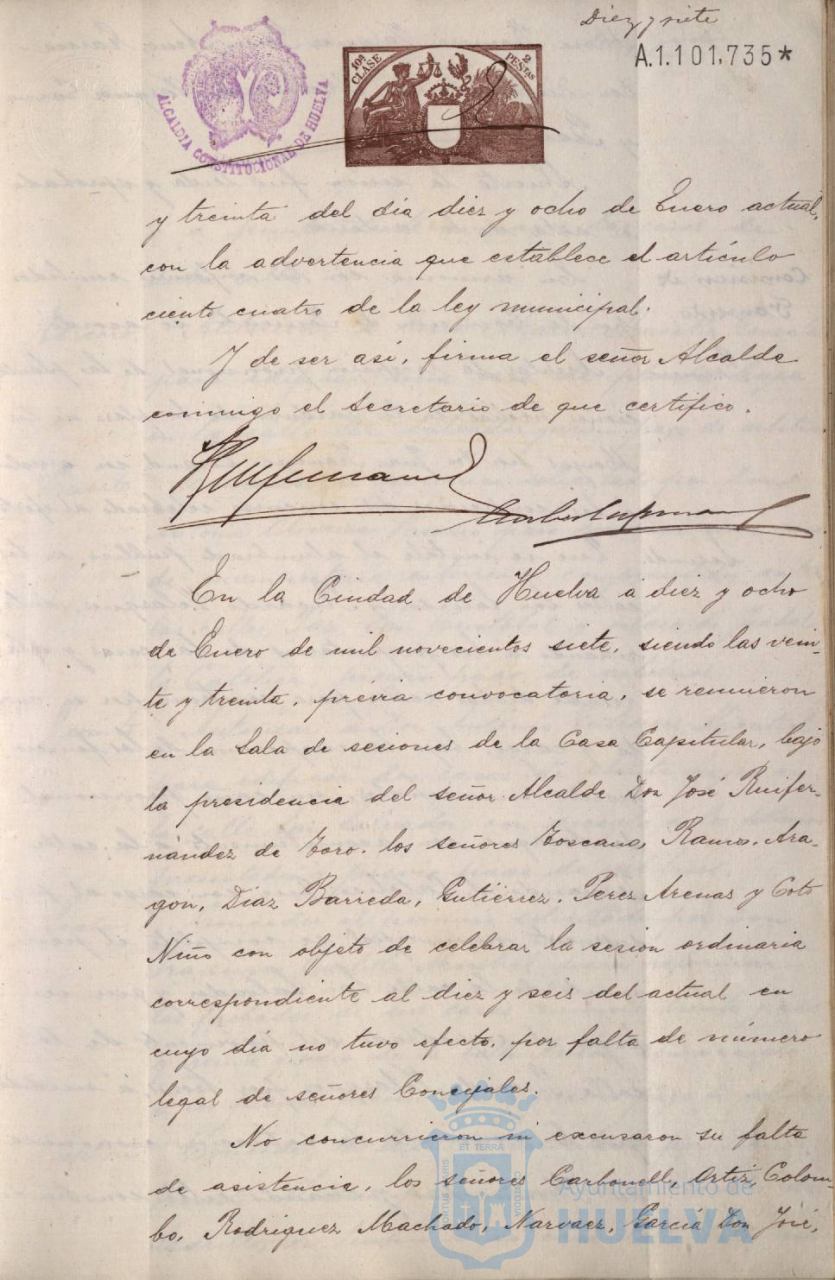 Diez y siete
A.1.101.735*
ALCALDIA CONSTITUCIONAL DE HUELVA
10ª CLASE
2 PESETAS
y treinta del día diez y ocho de Enero actual,
con la advertencia que establece el artículo
ciento cuatro de la ley municipal.
Y de ser así, firma el señor Alcalde
conmigo el Secretario de que certifico.
En la Ciudad de Huelva á diez y ocho
de Enero de mil novecientos siete, siendo las vein-
te y treinta, prévia convocatoria, se reunieron
en la Sala de sesiones de la Casa Capitular, bajo
la presidencia del señor Alcalde Don José Ruifer-
nández de Toro, los señores Toscano, Ramos, Ara-
gon, Díaz Barreda, Gutiérrez, Perez Arenas y Coto
Niño con objeto de celebrar la sesion ordinaria
correspondiente al diez y seis del actual en
cuyo día no tuvo efecto, por falta de número
legal de señores Concejales.
No concurrieron ni excusaron su falta
de asistencia, los señores Carbonell, Ortiz, Colom-
bo, Rodriguez Machado, Narvaez, García Don José,
ET TERRA
Ayuntamiento de
HUELVA